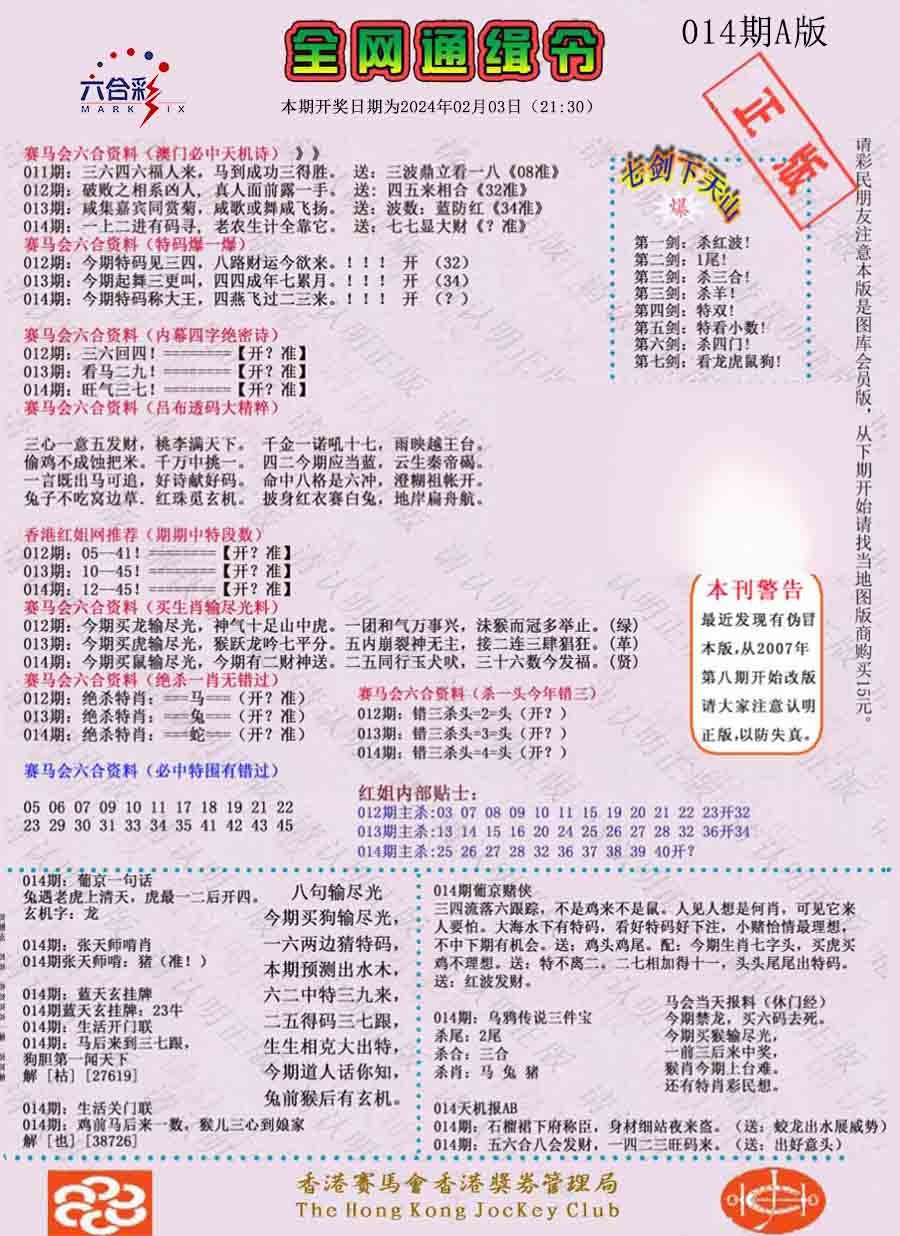 014期A版
全网通缉令
六合彩
MARK SIX
本期开奖日期为2024年02月03日（21:30）
正版
赛马会六合资料（澳门必中天机诗）》》
011期：三六四六福人来，马到成功三得胜。 送：三波鼎立看一八《08准》
012期：破败之相系凶人，真人面前露一手。 送：四五来相合《32准》
013期：咸集嘉宾同赏菊，咸歌或舞咸飞扬。 送：波数：蓝防红《34准》
014期：一上二进有码寻，老农生计全靠它。 送：七七显大财《？准》
赛马会六合资料（特码爆一爆）
012期：今期特码见三四，八路财运今欲来。！！！ 开 （32）
013期：今期起舞三更叫，四四成年七累月。！！！ 开 （34）
014期：今期特码称大王，四燕飞过二三来。！！！ 开 （？）
赛马会六合资料（内幕四字绝密诗）
012期：三六回四！========【开？准】
013期：看马二九！========【开？准】
014期：旺气三七！========【开？准】
赛马会六合资料（吕布透码大精粹）
三心一意五发财，桃李满天下。 千金一诺吼十七，雨映越王台。
偷鸡不成蚀把米。千万中挑一。 四二今期应当蓝，云生秦帝碣。
一言既出马可追，好诗献好码。 命中八格是六冲，澄糊祖帐开。
兔子不吃窝边草．红珠觅玄机。 披身红衣赛白兔，地岸扁舟航。
香港红姐网推荐（期期中特段数）
012期：05—41！========【开？准】
013期：10—45！========【开？准】
014期：12—45！========【开？准】
赛马会六合资料（买生肖输尽光料）
012期：今期买龙输尽光，神气十足山中虎。一团和气万事兴，沫猴而冠多举止。（绿）
013期：今期买虎输尽光，猴跃龙吟七平分。五内崩裂神无主，接二连三肆猖狂。（革）
014期：今期买鼠输尽光，今期有二财神送。二五同行玉犬吠，三十六数今发福。（贤）
赛马会六合资料（绝杀一肖无错过）
012期：绝杀特肖：===马===（开？准）
013期：绝杀特肖：===兔===（开？准）
014期：绝杀特肖：===蛇===（开？准）
赛马会六合资料（杀一头今年错三）
012期：错三杀头=2=头（开？）
013期：错三杀头=3=头（开？）
014期：错三杀头=4=头（开？）
赛马会六合资料（必中特围有错过）
05 06 07 09 10 11 17 18 19 21 22
23 29 30 31 33 34 35 41 42 43 45
红姐内部贴士：
012期主杀：03 07 08 09 10 11 15 19 20 21 22 23开32
013期主杀：13 14 15 16 20 24 25 26 27 28 32 36开34
014期主杀：25 26 27 28 32 36 37 38 39 40开？
七剑下天山
爆
第一剑：杀红波！
第二剑：1尾！
第三剑：杀三合！
第三剑：杀羊！
第四剑：特双！
第五剑：特看小数！
第六剑：杀四门！
第七剑：看龙虎鼠狗！
请彩民朋友注意本版是图库会员版，从下期开始请找当地图版商购买15元。
本刊警告
最近发现有伪冒
本版，从2007年
第八期开始改版
请大家注意认明
正版，以防失真。
014期：葡京一句话
兔遇老虎上清天，虎最一二后开四。
玄机字：龙
014期：张天师哨肖
014期张天师哨：猪（准！）
014期：蓝天玄挂牌
014期蓝天玄挂牌：23牛
014期：生活开门联
014期：马后来到三七跟，
狗胆第一闻天下
解 [枯] [27619]
014期：生活关门联
014期：鸡前马后来一数，猴儿三心到娘家
解 [也] [38726]
八句输尽光
今期买狗输尽光，
一六两边猜特码，
本期预测出水木，
六二中特三九来，
二五得码三七跟，
生生相克大出特，
今期道人话你知，
兔前猴后有玄机。
014期葡京赌侠
三四流落六跟踪，不是鸡来不是鼠。人见人想是何肖，可见它来
人要怕。大海水下有特码，看好特码好下注，小赌怡情最理想，
不中下期有机会。送：鸡头鸡尾。配：今期生肖七字头，买虎买
鸡不理想。送：特不离二。二七相加得十一，头头尾尾出特码。
送：红波发财。
014期：乌鸦传说三件宝
杀尾：2尾
杀合：三合
杀肖：马 兔 猪
马会当天报料（休门经）
今期禁龙，买六码去死。
今期买猴输尽光，
一前三后来中奖，
猴肖今期上台难。
还有特肖彩民想。
014天机报AB
014期：石榴裙下府称臣，身材细站夜来盗。（送：蛟龙出水展威势）
014期：五六合八会发财，一四二三旺码来。（送：出好意头）
香港賽馬會香港獎券管理局
The Hong Kong JocKey Club